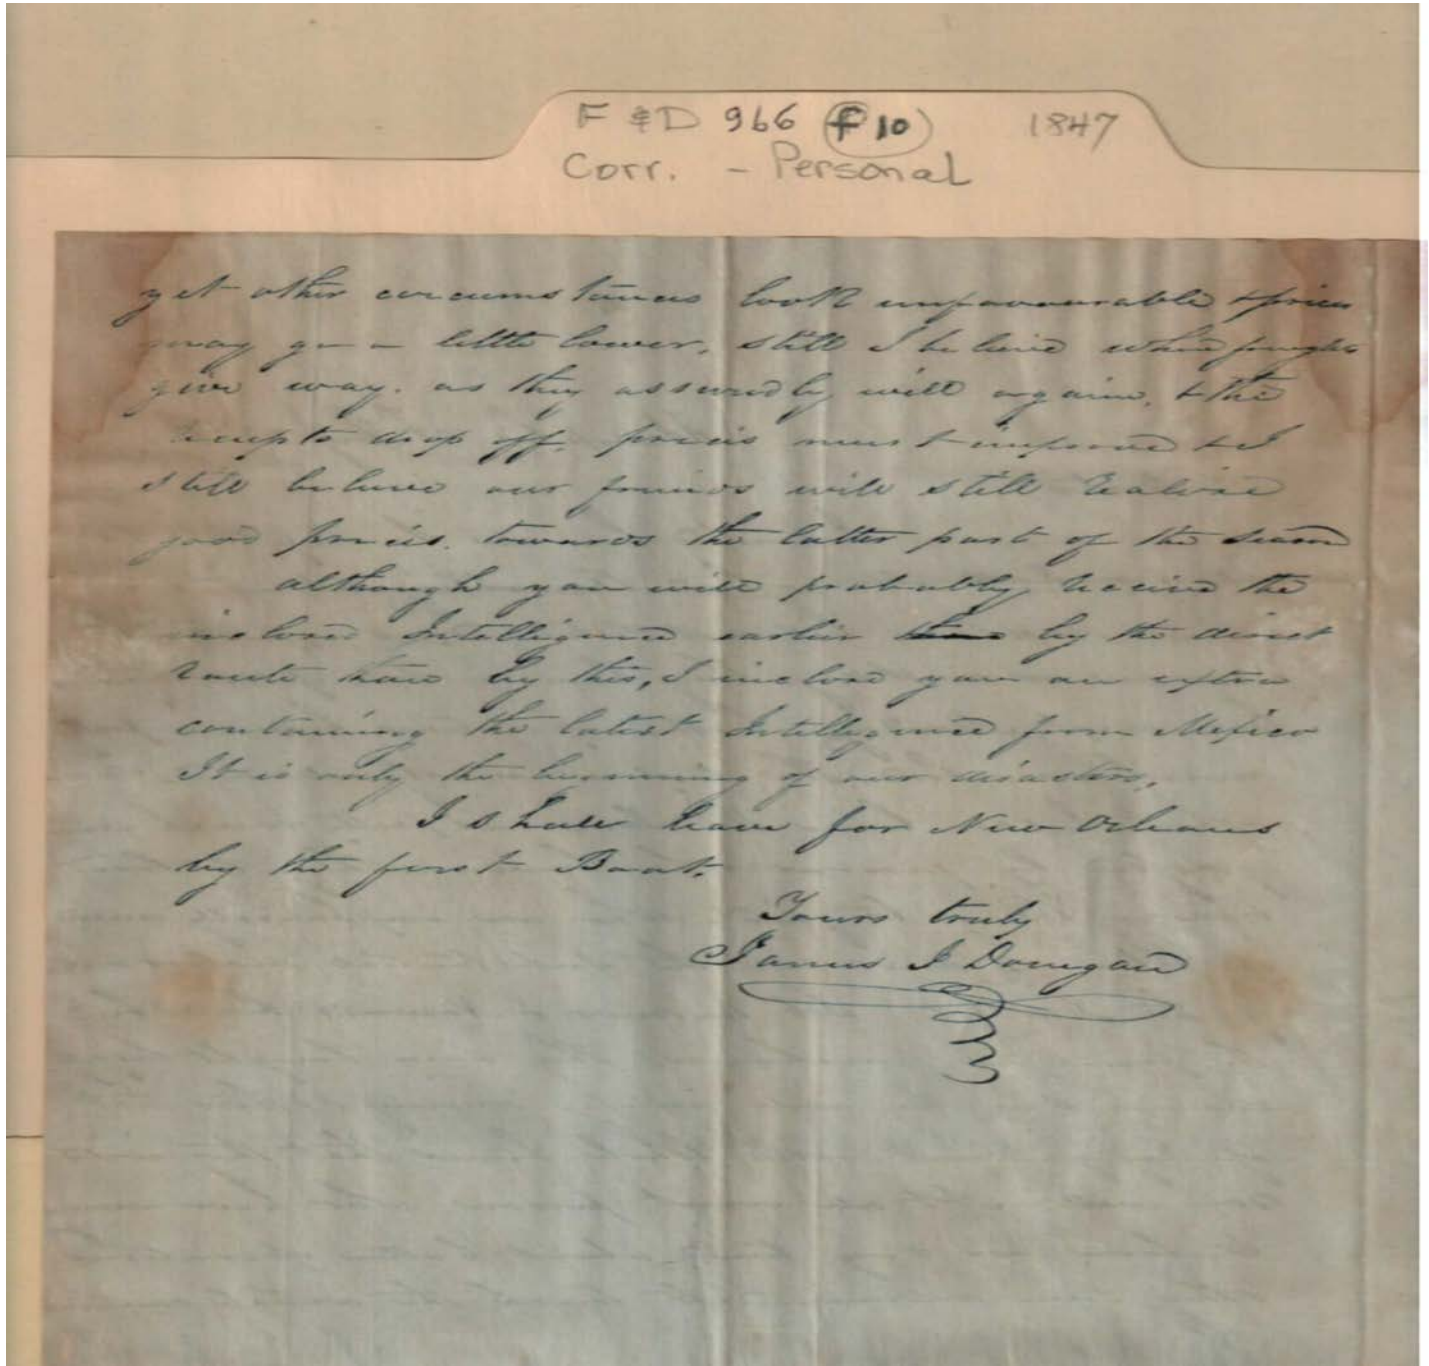 F & D 966 f 10 1847
Corr. - Personal
yet other circumstances look unfavourable & prices
may go a little lower, still I believe when freights
give way. as they assuredly will again, & the
receipts drop off. prices must improve & I
still believe our friends will still realise
good prices. towards the latter part of the season
although you will probably receive the
inclosed Intelligence earlier by the direct
route than by this, I inclose you an extra
containing the latest Intelligence from Mexico
It is only the beginning of our disasters.
I shall leave for New Orleans
by the first Boat.
Yours truly
James J Donegan